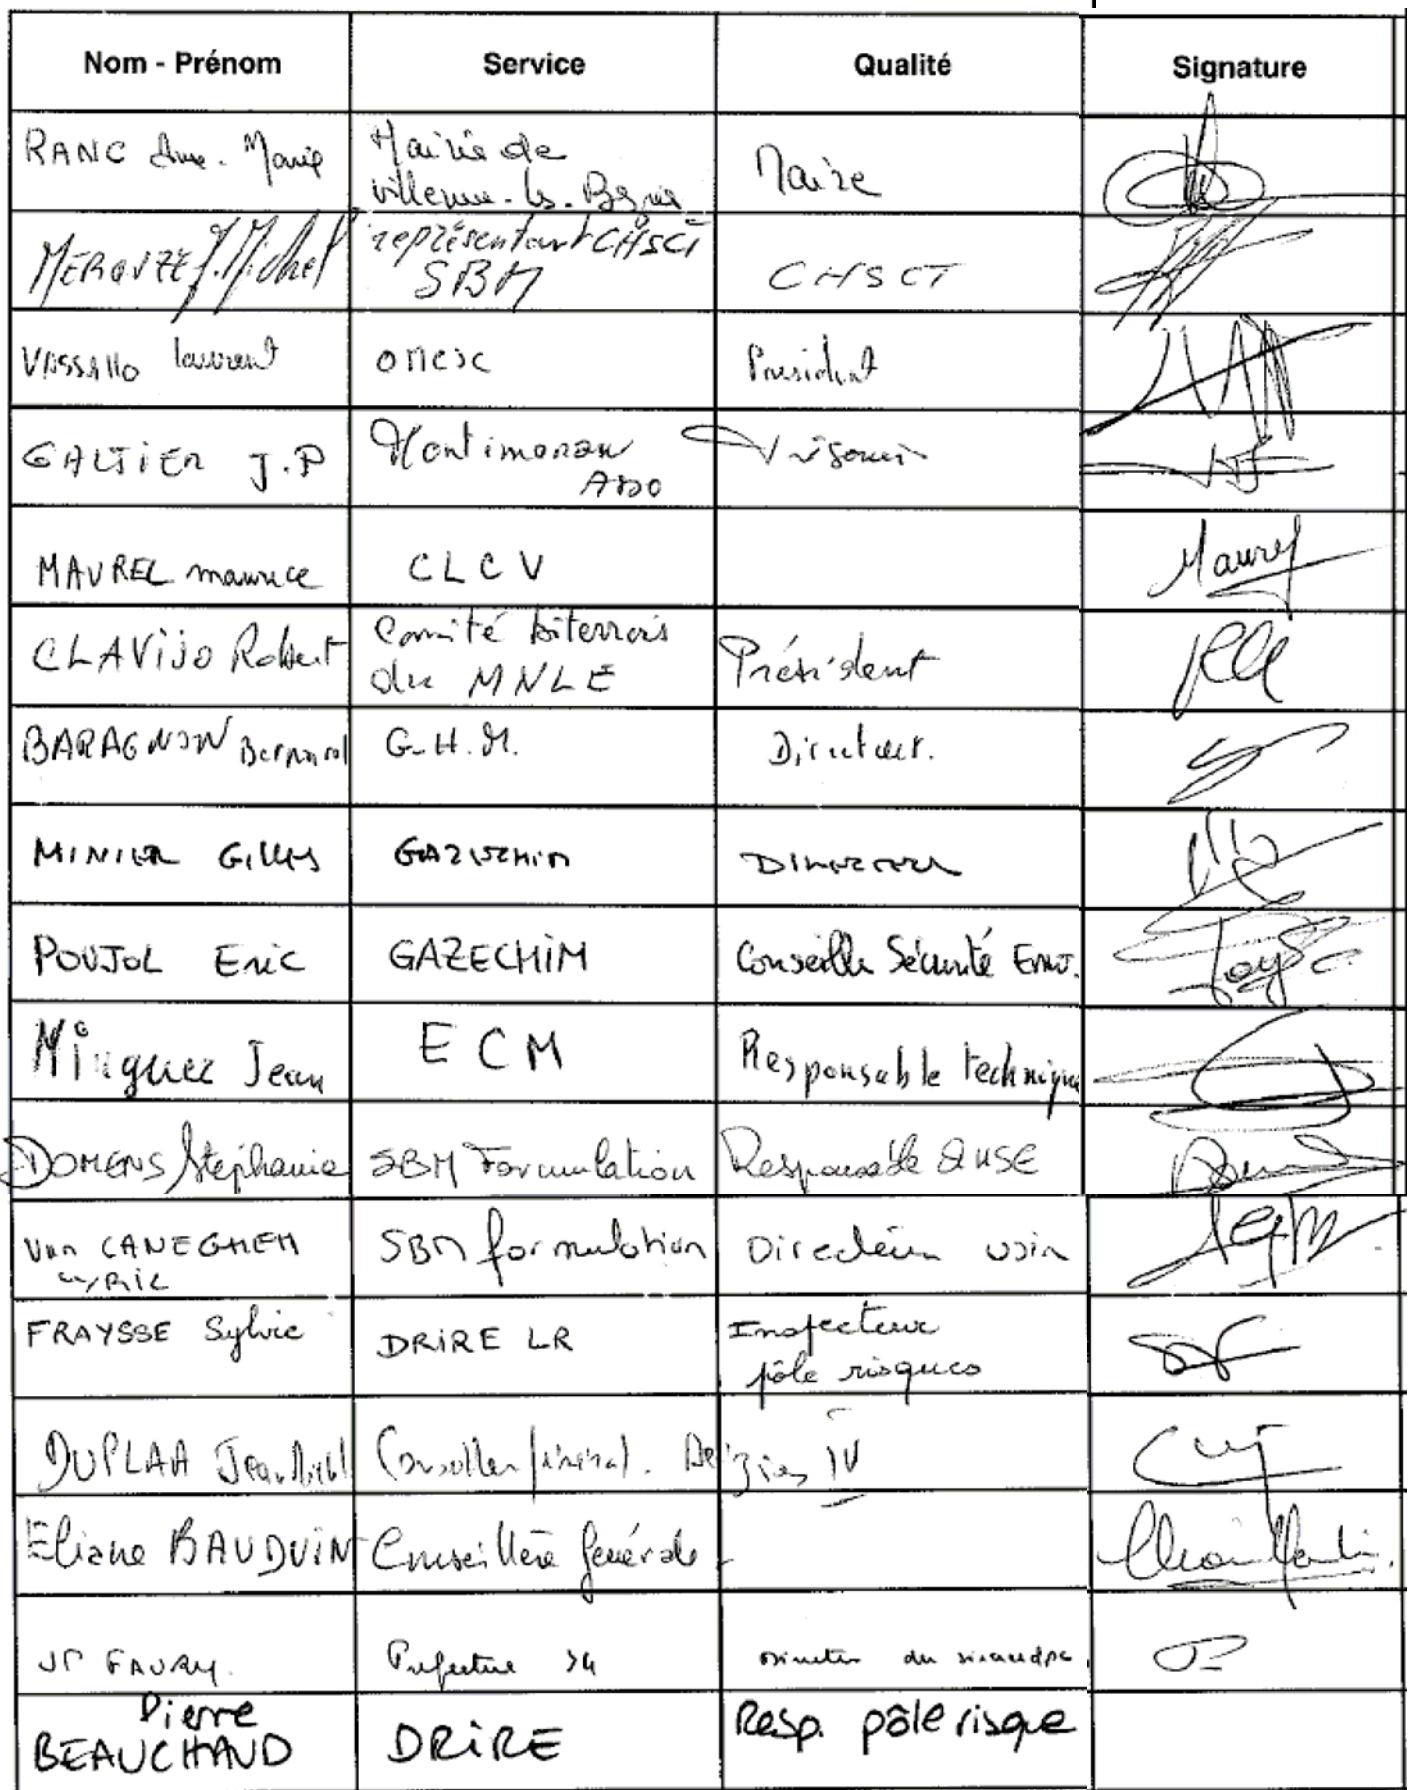 Nom - Prénom Service Qualité Signature
RANC Anne. Marie Mairie de Maire
villeneuve. les. Beziers
J.Michel représentant CHSCT CHSCT
SBM
VASSALLO laurent Président
GALTIER J.P
MAUREL maurice CLCV Maurel
CLAVIJO Robert Comité biterrois Président
du MNLE
BARAGNON Bernard G.H.M. Directeur.
MINIER Gilles GAZECHIM DIRECTEUR
POUJOL Eric GAZECHIM Conseiller Sécurité Env.
Minguez Jean ECM Responsable technique
DOMENS Stéphanie SBM Formulation Responsable QHSE
Van CANEGHEM SBM formulation Directeur usin
cyril
FRAYSSE Sylvie DRIRE LR Inspecteur
pôle risques
DUPLAA Jean Michel Conseiller général. Béziers IV
Eliane BAUDUIN Conseillère générale
JP FAURY. Préfecture 34 du
Pierre Resp. pôle risque
BEAUCHAUD DRIRE